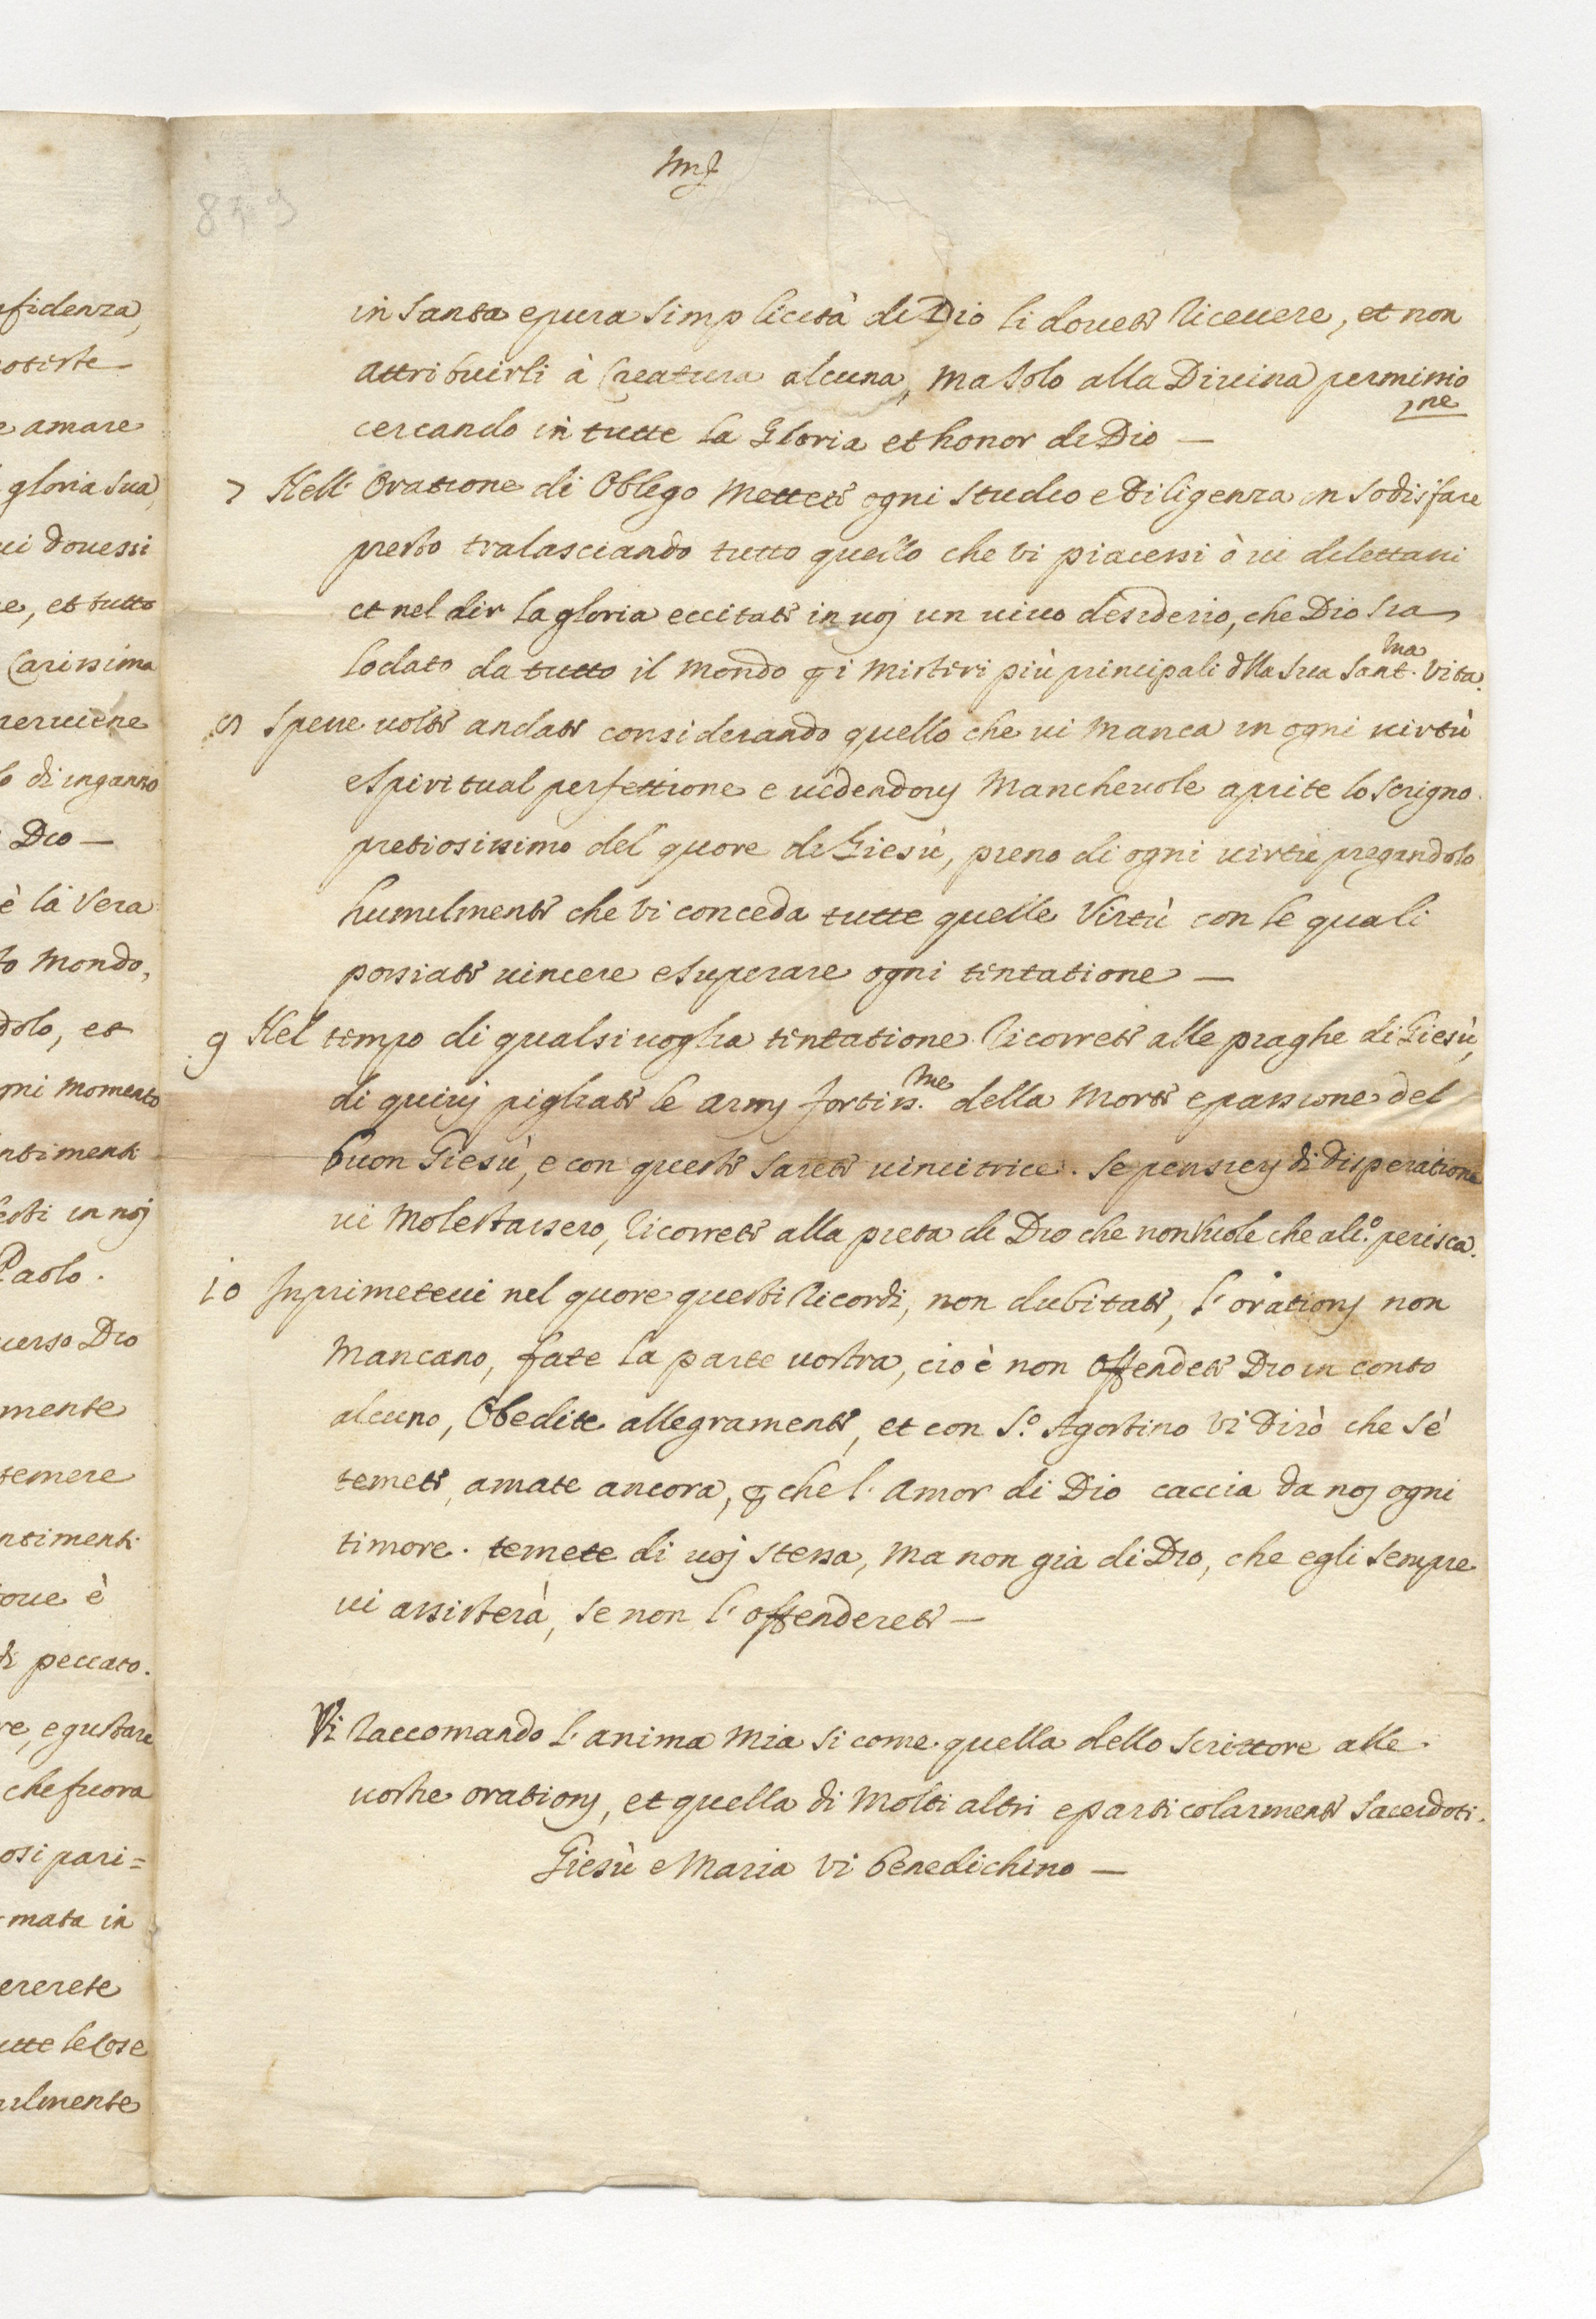 849
in Santa e pura Simplicità di Dio li douete riceuere, et non
attribuirli à Creatura alcuna, ma solo alla Diuina permissio
ne
cercando in tutte la Gloria et honor di Dio —
7 Nell' Oratione di Oblego mettete ogni studio e diligenza in sodisfare
presto tralasciando tutto quello che vi piacessi ò ui dilettassi
et nel dir la gloria eccitate in uoj un uiuo desiderio, che Dio sia
lodato da tutto il mondo p i misteri più principali dlla sua Sant.ma Vita.
8 Spesse uolte andate considerando quello che ui manca in ogni uirtù
e spiritual perfettione e uedendouj mancheuole aprite lo scrigno
pretiosissimo del quore di Giesù, pieno di ogni uirtù pregandolo
humilmente che vi conceda tutte quelle Virtù con le quali
possiate uincere e superare ogni tentatione —
9 Nel tempo di qualsiuoglia tentatione ricorrete alle piaghe di Giesù,
di quiuj pigliate le armj fortiss.me della Morte e passione del
buon Giesù, e con queste sarete uincitrice. Se pensierj di disperatione
ui molestassero, ricorrete alla pieta di Dio che non Vuole che alc.o perisca.
10 Inprimeteui nel quore questi ricordi, non dubitate, l'orationj non
mancano, fate la parte uostra, cioè non offendete Dio in conto
alcuno, Obedite allegramente, et con S.o Agostino vi Dirò che sè
temete, amate ancora, p che l'Amor di Dio caccia da noj ogni
timore. temete di uoj stessa, ma non già di Dio, che egli sempre
ui assisterà, se non l'offenderete —
Vi raccomando l'anima mia si come quella dello scrittore alle
uostre orationj, et quella di molti altri e particolarmente sacerdoti.
Giesù e Maria vi benedichino —
nfidenza,
e amare
gloria sua,
ui douessi
e, et tutto
Carissima
o di inganno
Dio —
è la Vera
to mondo,
dolo, et
gni momento
ntimenti
esti in noj
Paolo.
uerso Dio
mente
temere
ntimenti
oue è
di peccato.
re, e gustare
che fuora
osi pari=
mata in
ererete
utte le cose
ilmente